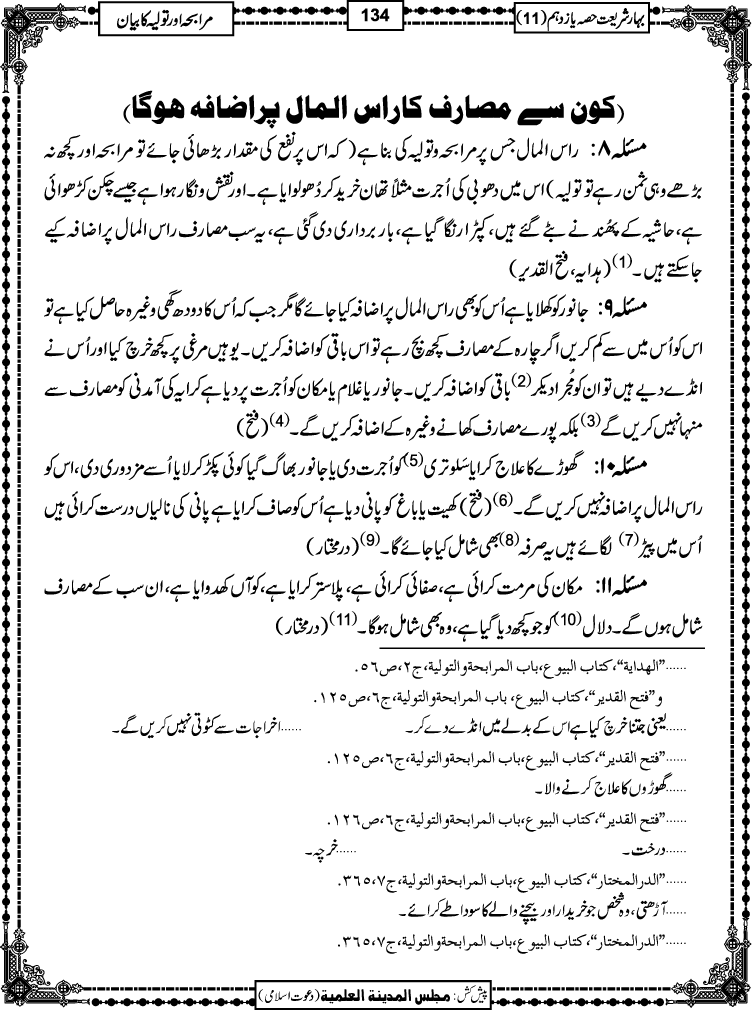 بہار شریعت حصہ یازدہم (11)
134
مرابحہ اور تولیہ کا بیان
(کون سے مصارف کا راس المال پر اضافہ ہوگا)
مسئلہ ۸: راس المال جس پر مرابحہ و تولیہ کی بنا ہے (کہ اس پر نفع کی مقدار بڑھائی جائے تو مرابحہ اور کچھ نہ
بڑھے وہی ثمن رہے تو تولیہ) اس میں دھوبی کی اُجرت مثلاً تھان خرید کر دُھولوایا ہے۔ اور نقش و نگار ہوا ہے جیسے چکن کڑھوائی
ہے، حاشیہ کے پھندنے بٹے گئے ہیں، کپڑا رنگا گیا ہے، بار برداری دی گئی ہے، یہ سب مصارف راس المال پر اضافہ کیے
جاسکتے ہیں۔(1) (ہدایہ، فتح القدیر)
مسئلہ ۹: جانور کو کھلایا ہے اُس کو بھی راس المال پر اضافہ کیا جائے گا مگر جب کہ اُس کا دودھ گھی وغیرہ حاصل کیا ہے تو
اس کو اُس میں سے کم کریں اگر چارہ کے مصارف کچھ بچ رہے تو اس باقی کو اضافہ کریں۔ یوہیں مرغی پر کچھ خرچ کیا اور اُس نے
انڈے دیے ہیں تو ان کو مُجرا دیکر(2) باقی کو اضافہ کریں۔ جانور یا غلام یا مکان کو اُجرت پر دیا ہے کرایہ کی آمدنی کو مصارف سے
منہا نہیں کریں گے(3) بلکہ پورے مصارف کھانے وغیرہ کے اضافہ کریں گے۔(4) (فتح)
مسئلہ ۱۰: گھوڑے کا علاج کرایا سَلوتری(5) کو اُجرت دی یا جانور بھاگ گیا کوئی پکڑ کر لایا اُسے مزدوری دی، اس کو
راس المال پر اضافہ نہیں کریں گے۔(6) (فتح) کھیت یا باغ کو پانی دیا ہے اُس کو صاف کرایا ہے پانی کی نالیاں درست کرائی ہیں
اُس میں پیڑ(7) لگائے ہیں یہ صرفہ(8) بھی شامل کیا جائے گا۔(9) (درمختار)
مسئلہ ۱۱: مکان کی مرمت کرائی ہے، صفائی کرائی ہے، پلاستر کرایا ہے، کوآں کھدوایا ہے، ان سب کے مصارف
شامل ہوں گے۔ دلال(10) کو جو کچھ دیا گیا ہے، وہ بھی شامل ہوگا۔(11) (درمختار)
......”الهداية“، كتاب البيوع، باب المرابحة والتولية، ج٢، ص٥٦.
و”فتح القدير“، كتاب البيوع، باب المرابحة والتولية، ج٦، ص١٢٥.
......یعنی جتنا خرچ کیا ہے اس کے بدلے میں انڈے دے کر۔ ......اخراجات سے کٹوتی نہیں کریں گے۔
......”فتح القدير“، كتاب البيوع، باب المرابحة والتولية، ج٦، ص١٢٥.
......گھوڑوں کا علاج کرنے والا۔
......”فتح القدير“، كتاب البيوع، باب المرابحة والتولية، ج٦، ص١٢٦.
......درخت۔ ......خرچہ۔
......”الدرالمختار“، كتاب البيوع، باب المرابحة والتولية، ج٧، ٣٦٥.
......آڑھتی، وہ شخص جو خریدار اور بیچنے والے کا سودا طے کرائے۔
......”الدرالمختار“، كتاب البيوع، باب المرابحة والتولية، ج٧، ٣٦٥.
پیش کش: مجلس المدینة العلمیة (دعوت اسلامی)